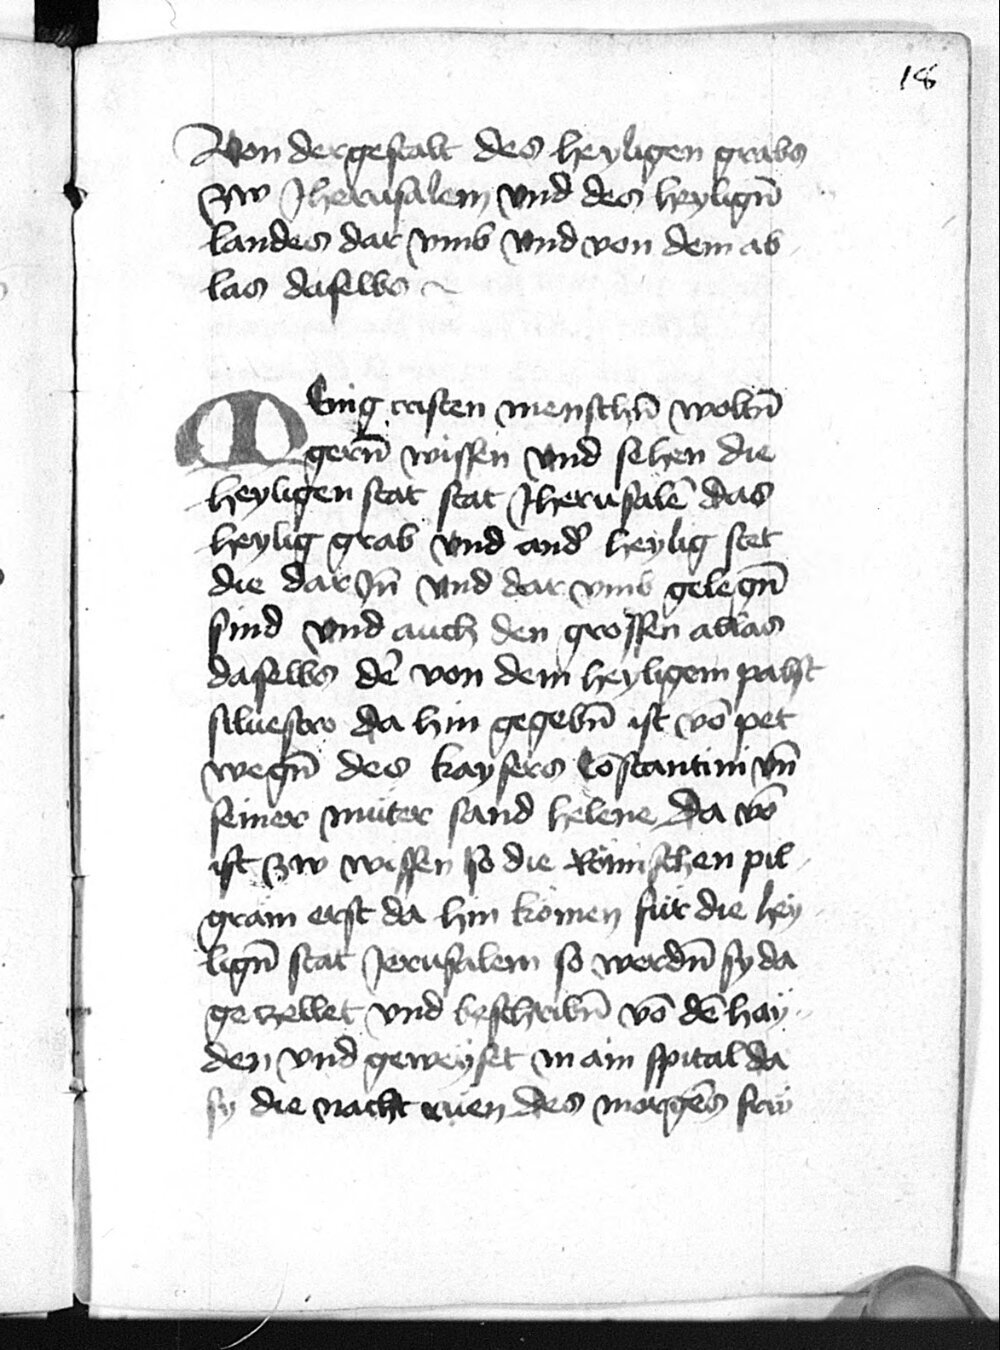 18
Von der gestalt des heyligen grabs
zw Jherusalem vnd des heyligñ
landes dar vmb vnd von dem ab
las daselbs
MEnig cristen menschñ woltñ
gerñ wissen vnd sehen die
heyligen stat stat Jherusalē das
heylig grab vnd and̄ heylig stet
die dar Jñ vnd dar vmb gelegñ
sind vnd auch den grossen ablas
daselbs dē von dem heyligem pabst
siluestro da hin gegebñ ist vō pet
wegñ des kaysers Cōstantini vñ
seiner muter sand helene Da vō
ist zw wissen so die Römischen pil
gram erst da hin kömen für die hey
ligñ stat Jerusalem so werdñ sy da
gezellet vnd beschribñ vō dē hay
den vnd geweyset in ain spital da
sy die nacht ruen des morgēs frw